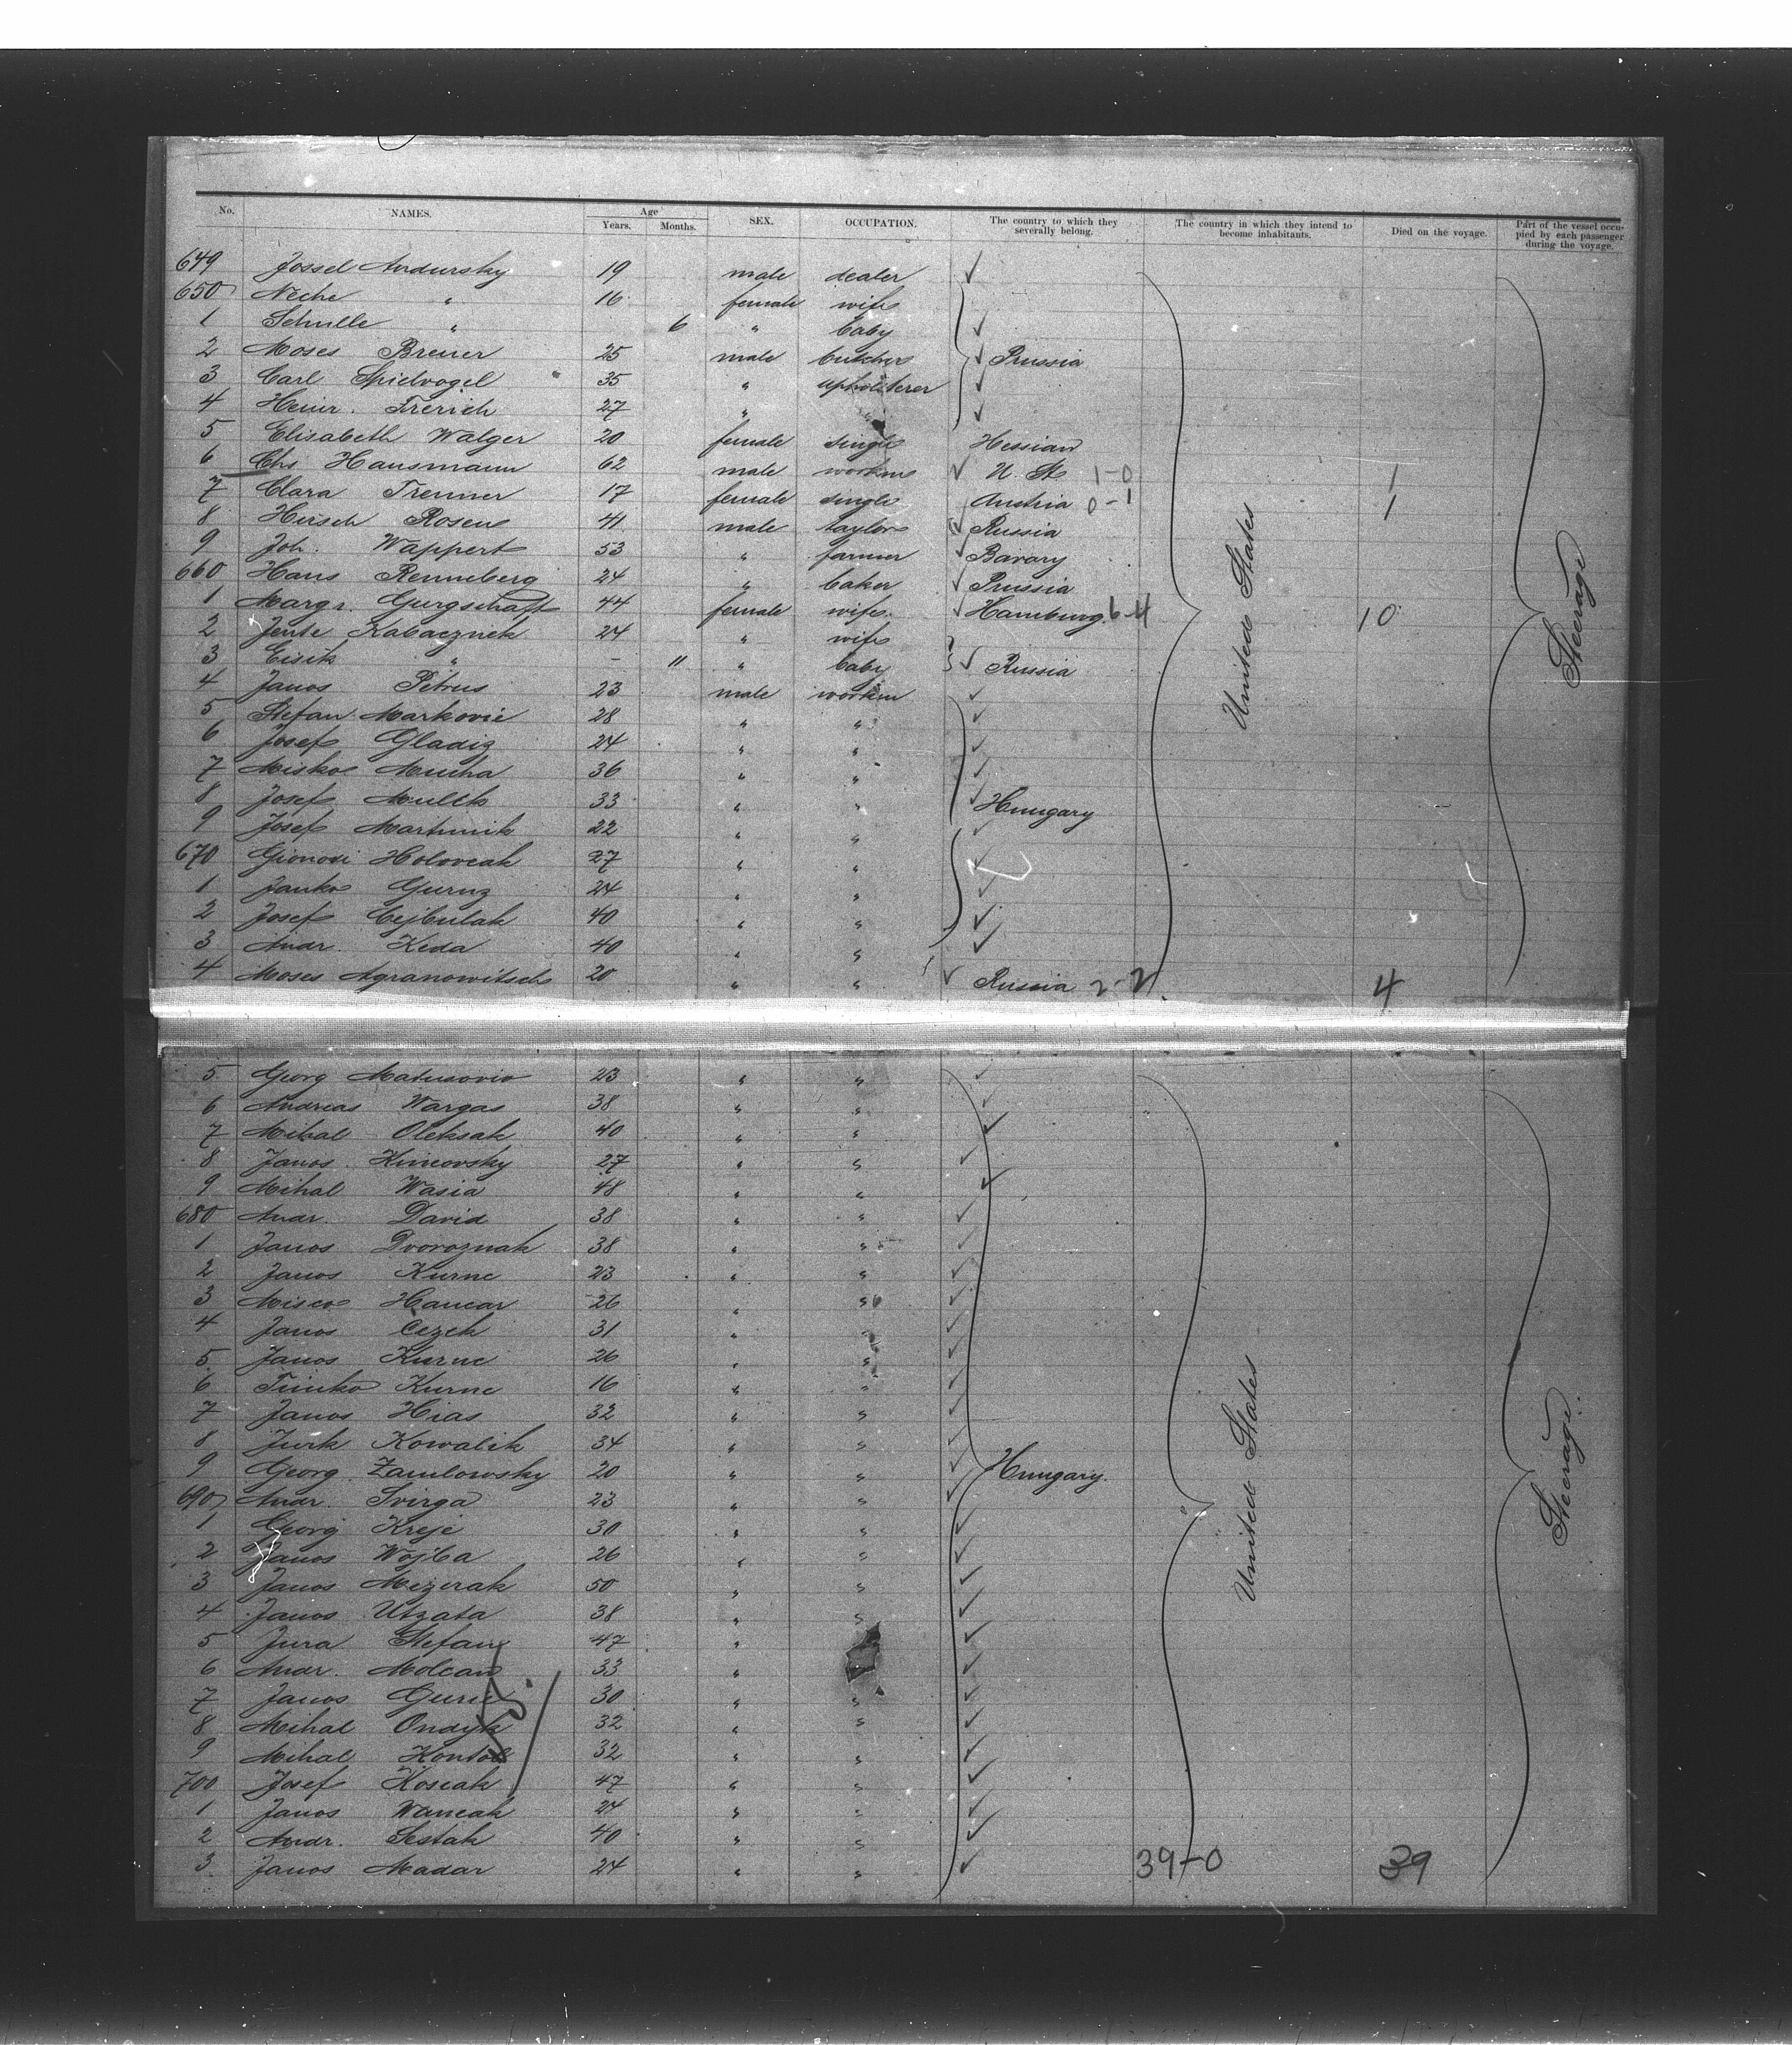 No. NAMES. Age Years. Months. SEX. OCCUPATION. The country to which they severally belong. The country in which they intend to become inhabitants. Died on the voyage. Part of the vessel occupied by each passenger during the voyage.
649 Jossel Andursky 19 male dealer
650 Neche " 16 female wife
1 Schulle " 6 " baby
2 Moses Breuer 25 male butcher Prussia
3 Carl Spielvogel 35 " upholsterer
4 Heinr. Frerich 27 " "
5 Elisabeth Walger 20 female single Hessian
6 Chs Hausmann 62 male workm U. St 1-0 1
7 Clara Trenner 17 female single Austria 0-1 1
8 Hirsch Rosen 41 male taylor Russia
9 Joh. Wappert 53 " farmer Bavary
660 Hans Renneberg 24 " baker Prussia
1 Margr. Gurgschaft 44 female wife Hamburg 6-4 10
2 Jente Kabacznek 24 " wife
3 Eisik " - 11 " baby Russia
4 Janos Petrus 23 male workm
5 Stefan Markovic 28 " "
6 Josef Gladiz 24 " "
7 Misko Mucha 36 " "
8 Josef Mullek 33 " " Hungary
9 Josef Martinik 22 " "
670 Gionovi Holovcak 27 " "
1 Janko Gurnz 24 " "
2 Josef Cejbulak 40 " "
3 Andr. Keda 40 " "
4 Moses Agranowitsch 20 " " Russia 2-2 4
United States
Steerage
5 Georg Matusoviv 23 " "
6 Andreas Wargas 38 " "
7 Mihal Oleksak 40 " "
8 Janos Kincovsky 27 " "
9 Mihal Wasia 48 " "
680 Andr. David 38 " "
1 Janos Dvoroznak 38 " "
2 Janos Kurnc 23 " "
3 Misco Hancar 26 " "
4 Janos Cezek 31 " "
5 Janos Kurnc 26 " "
6 Timko Kurnc 16 " "
7 Janos Hias 32 " "
8 Jurk Kowalik 34 " "
9 Georg Zamlowsky 20 " " Hungary.
690 Andr. Svirga 23 " "
1 Georg Kreje 30 " "
2 Janos Wojba 26 " "
3 Janos Mizerak 50 " "
4 Janos Utzata 38 " "
5 Jura Stefan 47 "
6 Andr. Molcan 33 "
7 Janos Guric 30 " "
8 Mihal Ondyk 32 " "
9 Mihal Kontol 32 " "
700 Josef Koscak 47 " "
1 Janos Wancak 24 " "
2 Andr. Sestak 40 " "
3 Janos Madar 24 " " 39-0 39
United States
Steerage.